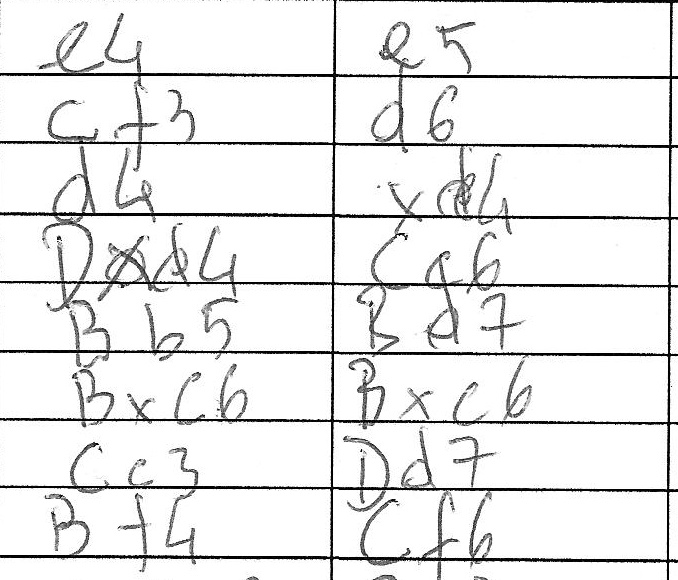 e4 e5
Cf3 d6
d4 xd4
Dxd4 Cc6
Bb5 Bd7
Bxc6 Bxc6
Cc3 Dd7
Bf4 Cf6